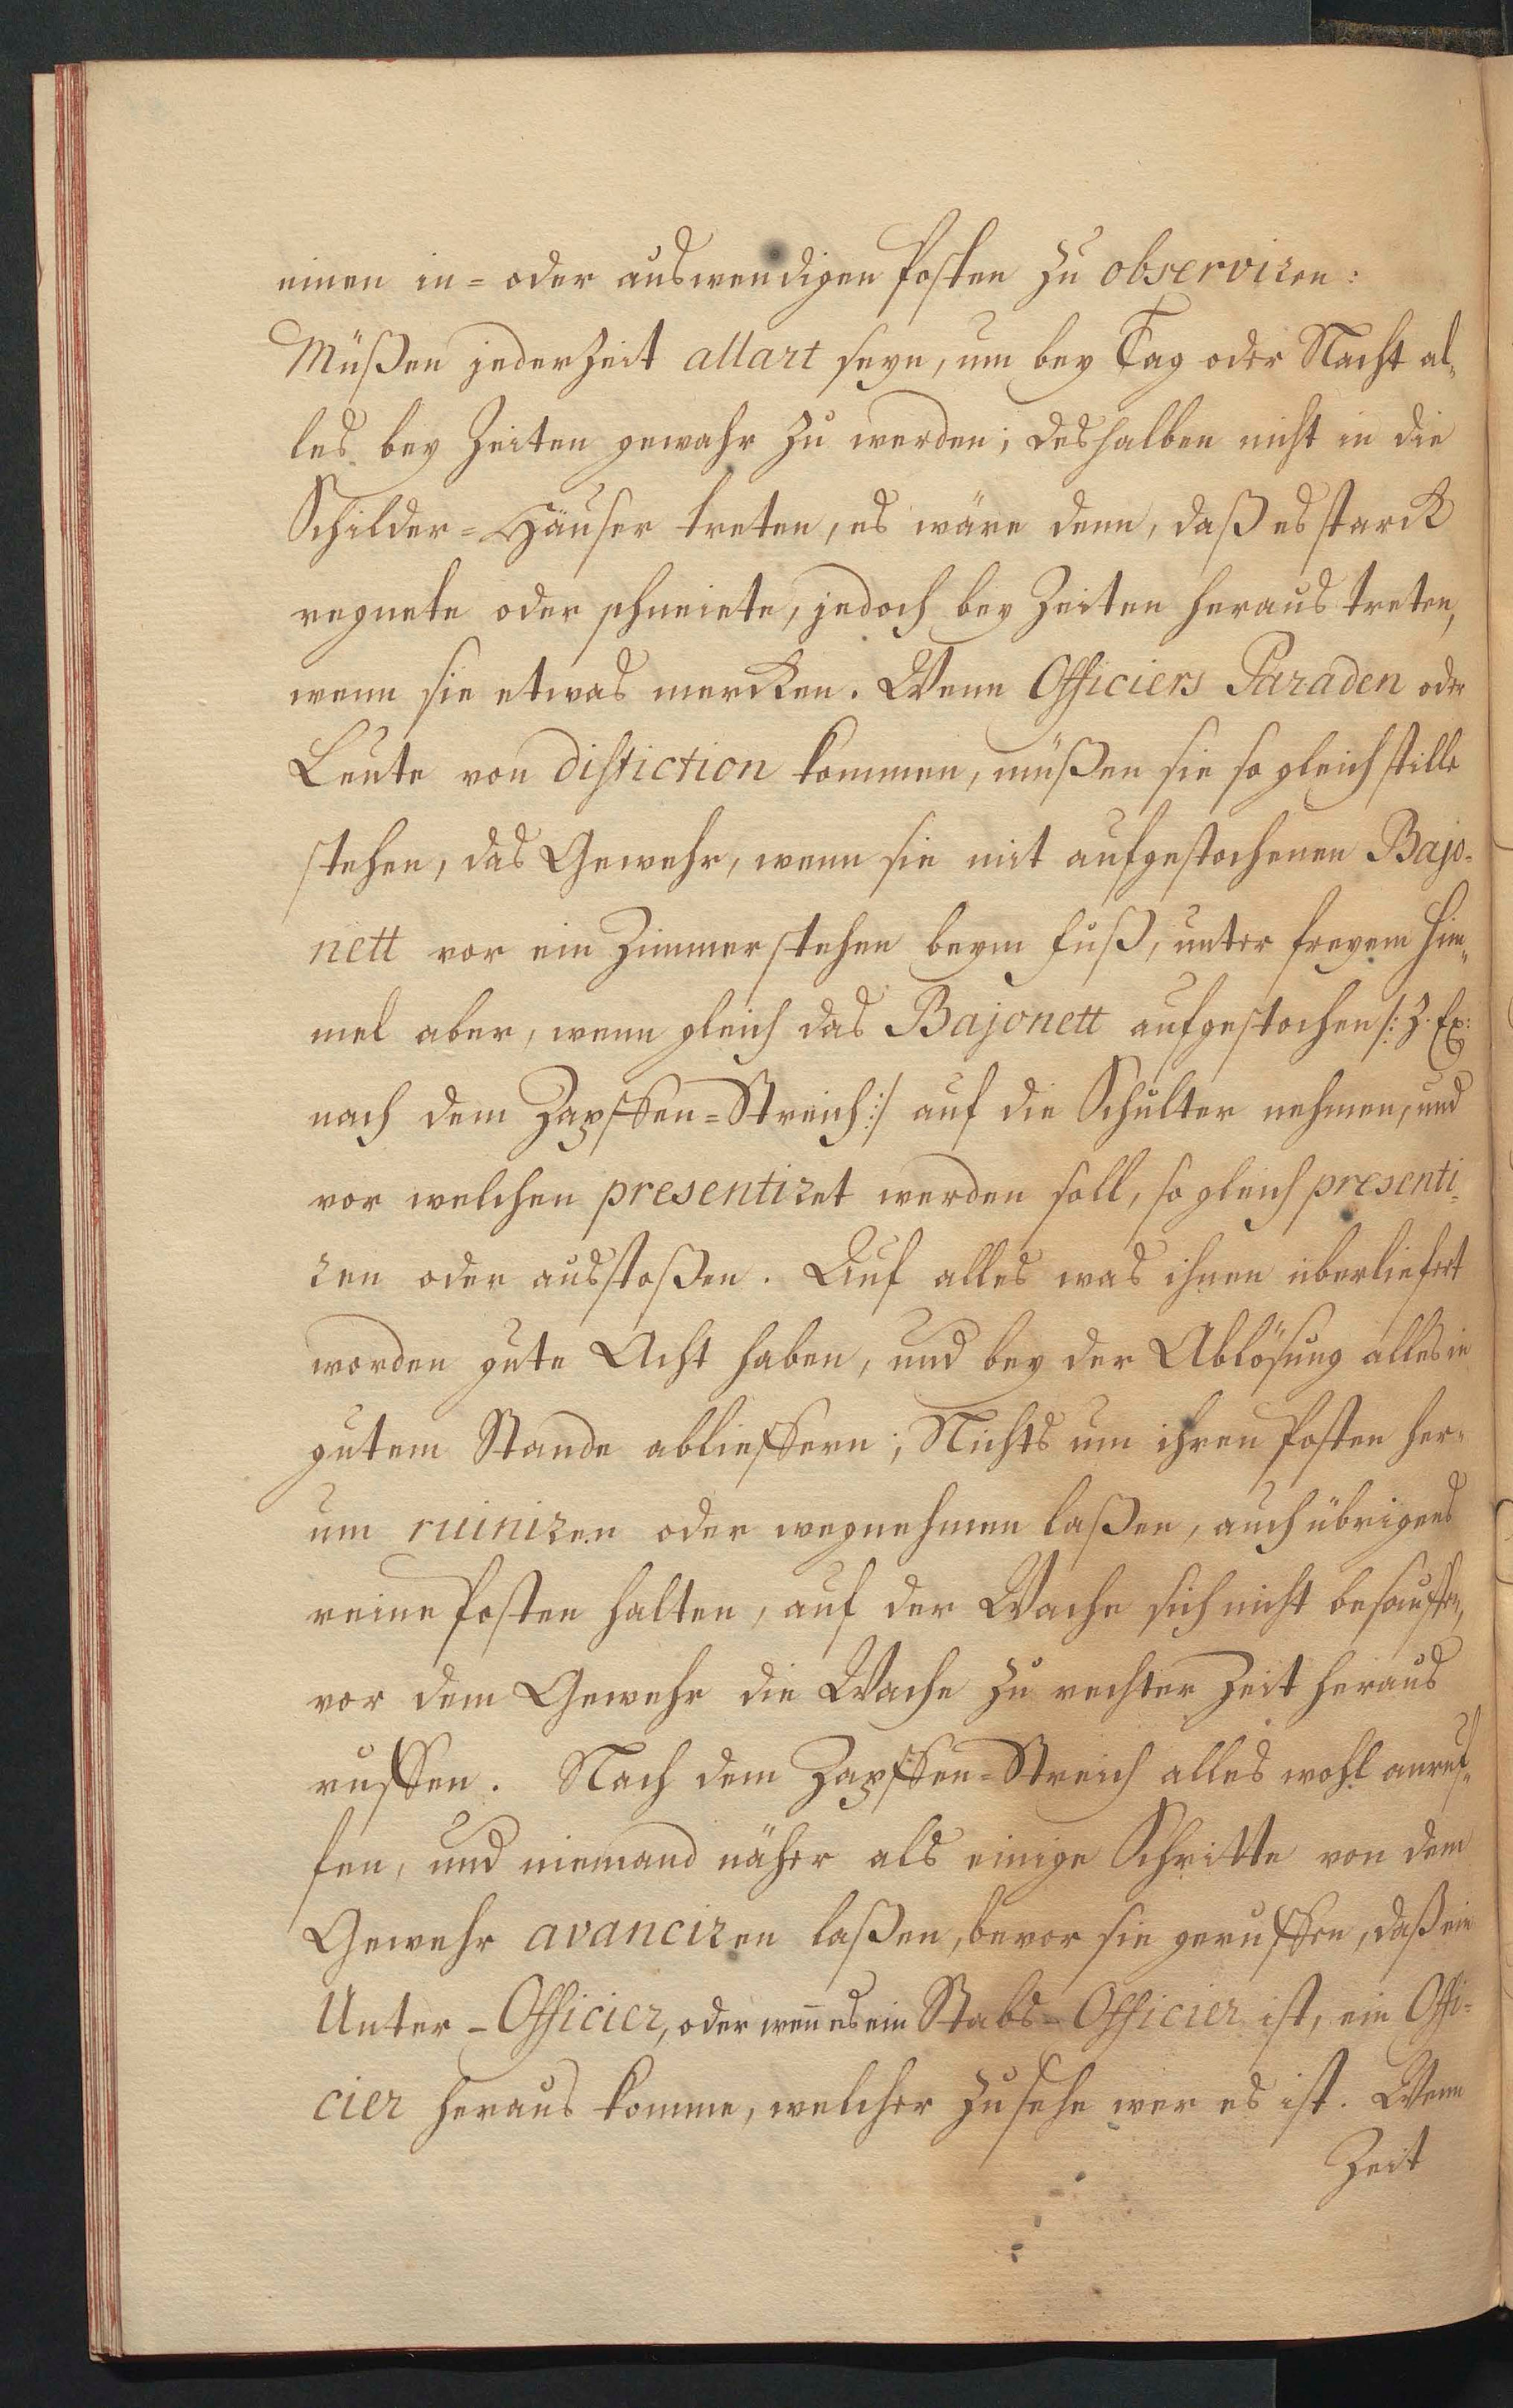 einen in= oder auswendigen Posten zu observiren:
Müßen jederzeit allart seyn, um bey Tag oder Nacht al=
les bey Zeiten gewahr zu werden; deshalben nicht in die
Schilder=Häuser treten, es wäre denn, daß es starck
regnete oder schneiete, jedoch bey Zeiten heraus treten,
wenn sie etwas mercken. Wenn Officiers Paraden oder
Leute von distiction kommen, müßen sie so gleich stille
stehen, das Gewehr, wenn sie mit aufgestochenen Bajo=
nett vor ein Zimmer stehen beym Fuß, unter freyem Him=
mel aber, wenn gleich das Bajonett aufgestochen /: Z. Ex:
nach dem Zapffen=Streich :/ auf die Schulter nehmen, und
vor welchen presentiret werden soll, so gleich presenti=
ren oder ausstoßen. Auf alles was ihnen überliefert
worden gute Acht haben, und bey der Ablösung alles in
gutem Standeablieffern; Nichts um ihren Posten her=
um ruiniren oder wegnehmen laßen, auch übrigens
reine Posten halten, auf der Wache sich nicht besauffen,
vor dem Gewehr die Wache zu rechter Zeit heraus
ruffen. Nach dem Zapffen=Streich alles wohl anruf=
fen, und niemand näher als einige Schritte von dem
Gewehr avanciren laßen, bevor sie geruffen, daß ein
Unter-Officier, oder wen̄ es ein Stabs-Officier ist, ein Offi=
cier heraus komme, welcher zusehe wer es ist. Wenn
Zeit